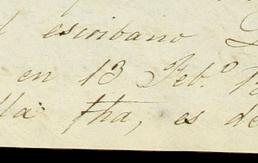 escribano
en 13 Feb.º
tha, es de